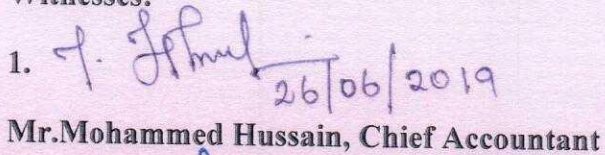 Witnesses:
1.
26/06/2019
Mr.Mohammed Hussain, Chief Accountant